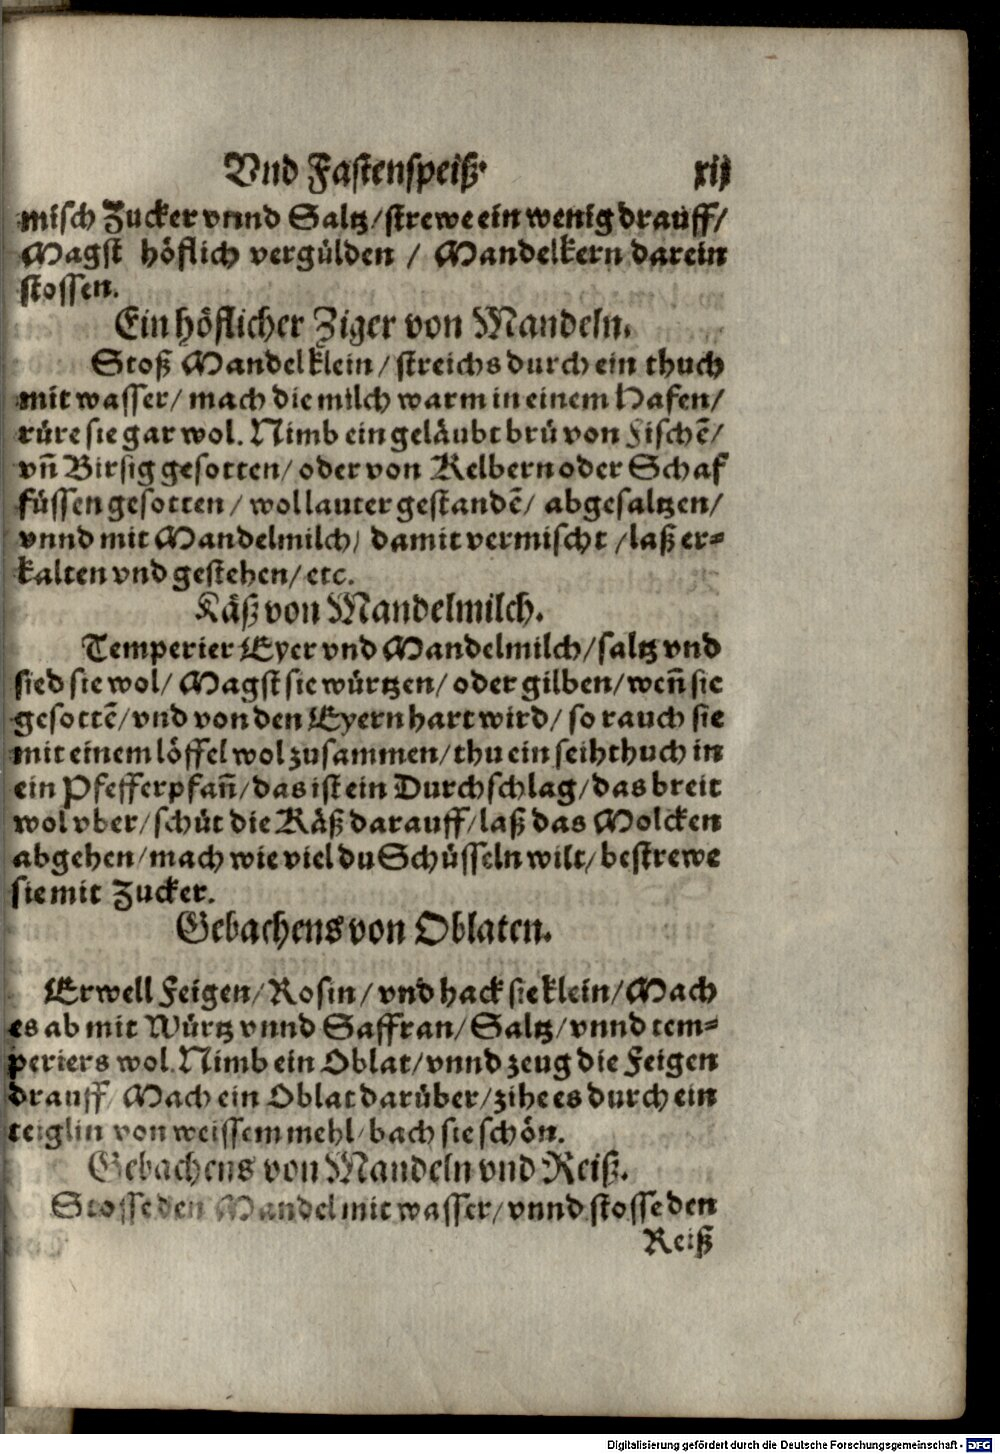 Vnd Fastenspeiß. xij
misch Zucker vnnd Saltz/strewe ein wenig drauff/
Magst höflich vergülden / Mandelkern darein
stossen.
Ein höflicher Ziger von Mandeln.
Stoß Mandel klein/streichs durch ein thuch
mit wasser/ mach die milch warm in einem Hafen/
rüre sie gar wol. Nimb ein geläubt brü von Fischē/
vñ Birsig gesotten/ oder von Kelbern oder Schaf
füssen gesotten/ wol lauter gestandē/ abgesaltzen/
vnnd mit Mandelmilch/ damit vermischt /laß er-
kalten vnd gestehen/etc.
Käß von Mandelmilch.
Temperier Eyer vnd Mandelmilch/saltz vnd
sied sie wol/ Magst sie würtzen/ oder gilben/weñ sie
gesottē/vnd von den Eyern hart wird/ so rauch sie
mit einem löffel wol zusammen/thu ein seihthuch in
ein Pfefferpfañ/das ist ein Durchschlag/das breit
wol vber/schüt die Käß darauff/laß das Molcken
abgehen/mach wie viel du Schüsseln wilt/bestrewe
sie mit Zucker.
Gebachens von Oblaten.
Erwell Feigen/Rosin/vnd hack sie klein/Mach
es ab mit Würtz vnnd Saffran/Saltz/vnnd tem-
periers wol. Nimb ein Oblat/vnnd zeug die Feigen
drauff/ Mach ein Oblat darüber/zihe es durch ein
teiglin von weissem mehl/bach sie schön.
Gebachens von Mandeln vnd Reiß.
Stosse den Mandel mit wasser/vnnd stosse den
Reiß
Digitalisierung gefördert durch die Deutsche Forschungsgemeinschaft - DFG